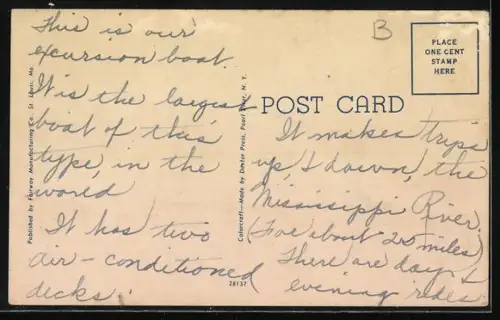 This is our
excursion boat.
It is the largest
boat of this
type, in the
world
It has two
air-conditioned
decks.
B
PLACE
ONE CENT
STAMP
HERE
POST CARD
It makes trips
up, & down, the
Mississippi River.
(For about 20 miles)
There are day &
evening rides
Published by Fairway Manufacturing Co. St. Louis, Mo.
Colorcraft—Made by Dexter Press, Pearl River, N. Y.
28137